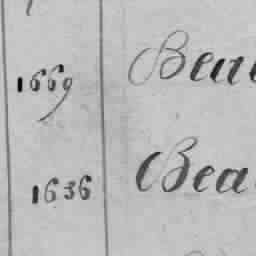 1669 Beau
1636 Bea